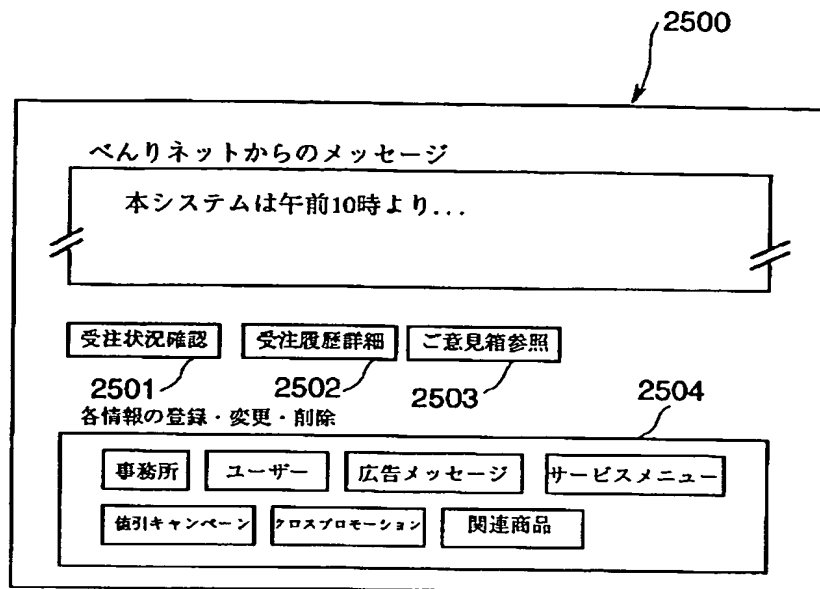 2500
べんりネットからのメッセージ
本システムは午前10時より...
受注状況確認 受注履歴詳細 ご意見箱参照
2501 2502 2503 2504
各情報の登録・変更・削除
事務所 ユーザー 広告メッセージ サービスメニュー
値引キャンペーン クロスプロモーション 関連商品